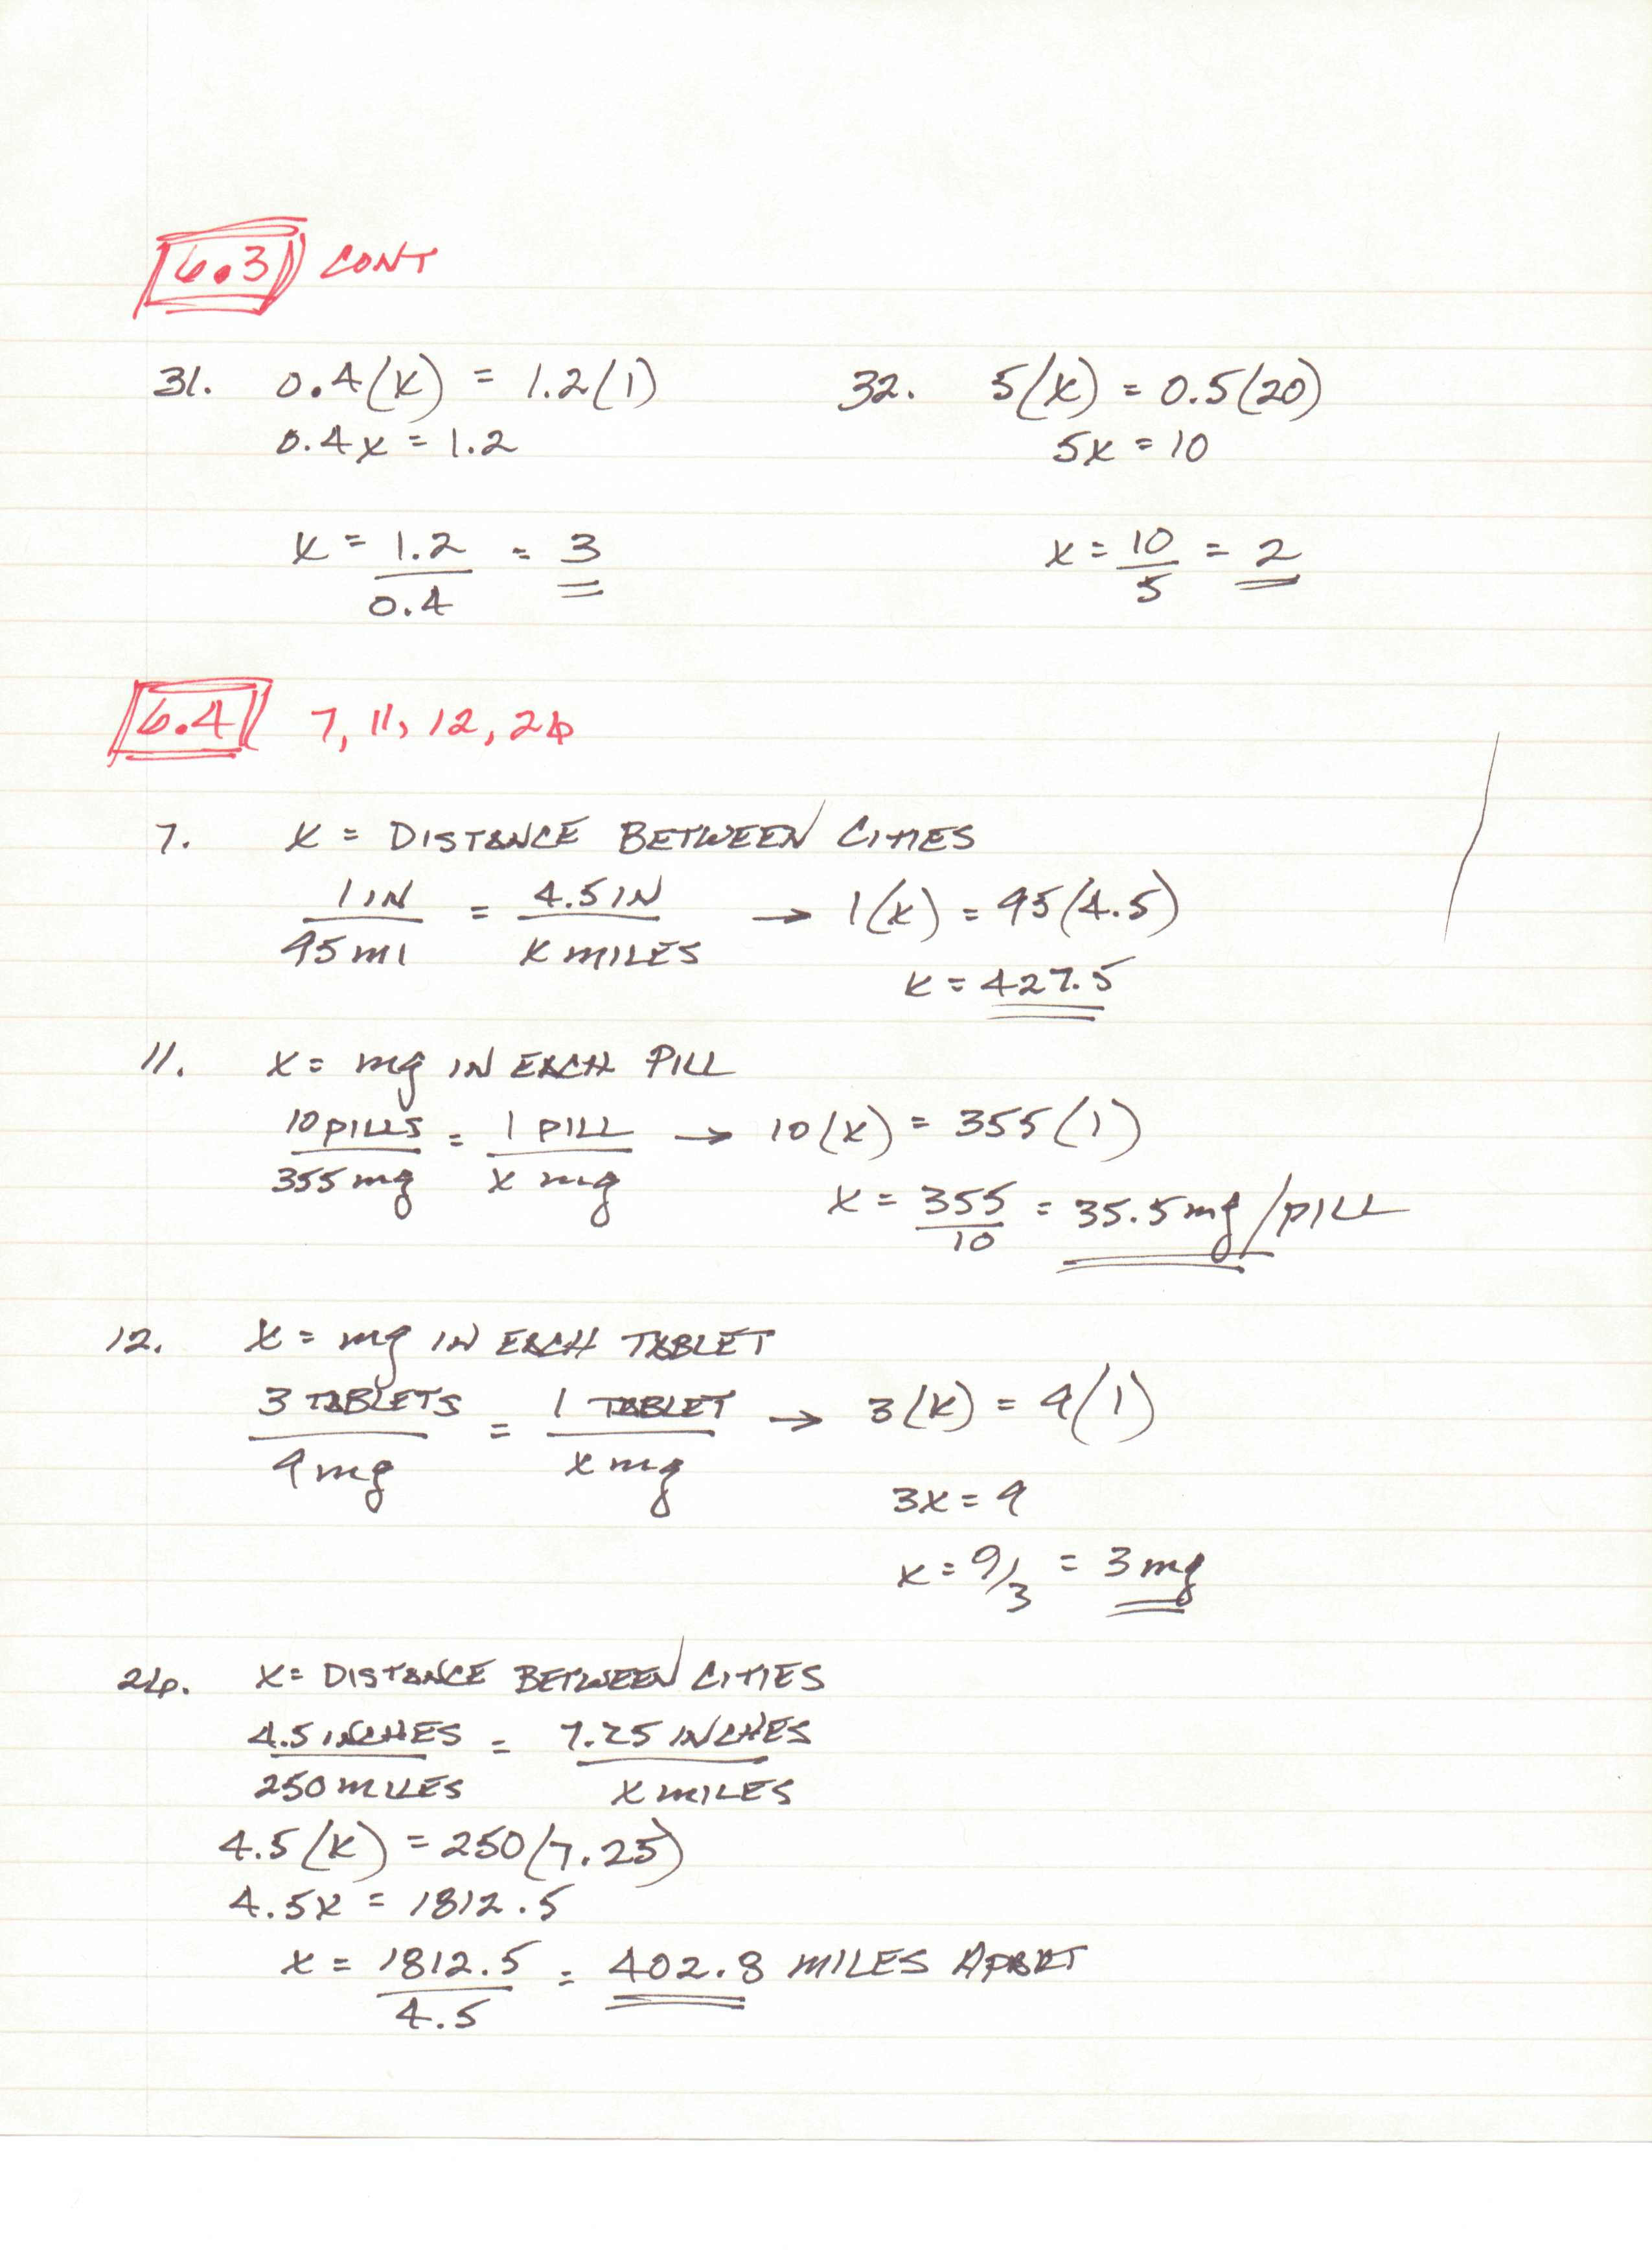 6.3 CONT
31. 0.4(x) = 1.2(1)
0.4x = 1.2
x = 1.2/0.4 = 3
32. 5(x) = 0.5(20)
5x = 10
x = 10/5 = 2
6.4 7, 11, 12, 26
7. x = DISTANCE BETWEEN CITIES
1 IN/95 MI = 4.5 IN/x MILES → 1(x) = 95(4.5)
x = 427.5
11. x = mg IN EACH PILL
10 PILLS/355 mg = 1 PILL/x mg → 10(x) = 355(1)
x = 355/10 = 35.5 mg/PILL
12. x = mg IN EACH TABLET
3 TABLETS/9 mg = 1 TABLET/x mg → 3(x) = 9(1)
3x = 9
x = 9/3 = 3 mg
26. x = DISTANCE BETWEEN CITIES
4.5 INCHES/250 MILES = 7.25 INCHES/x MILES
4.5(x) = 250(7.25)
4.5x = 1812.5
x = 1812.5/4.5 = 402.8 MILES APART